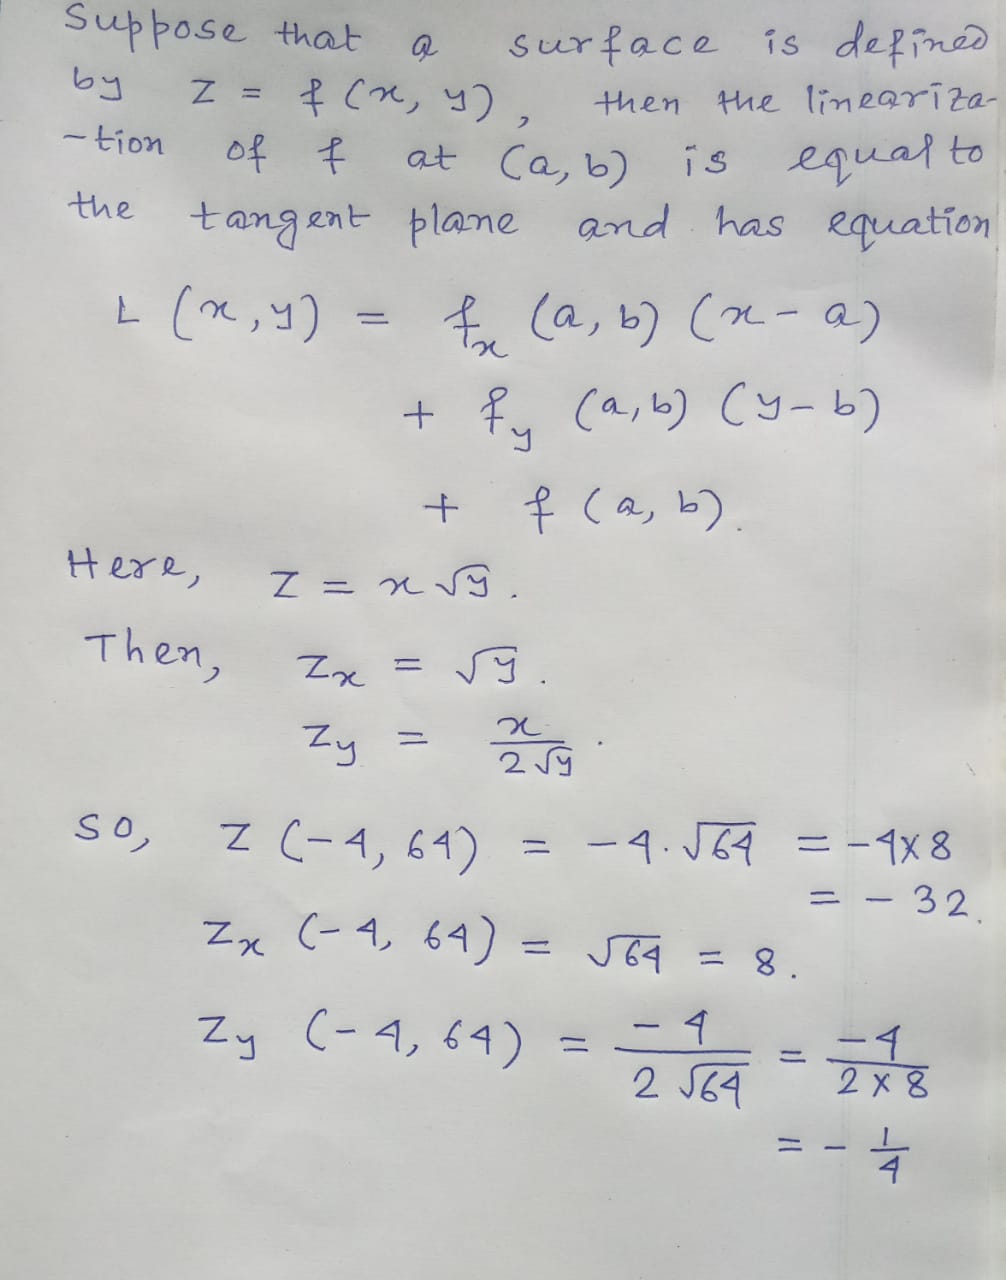 Suppose that a surface is defined
by z = f (x, y), then the lineariza-
-tion of f at (a, b) is equal to
the tangent plane and has equation
L (x, y) = f_x (a, b) (x - a)
+ f_y (a, b) (y - b)
+ f (a, b).
Here, z = x √y.
Then, z_x = √y.
z_y = x / (2√y).
So, z (-4, 64) = -4.√64 = -4×8
= -32.
z_x (-4, 64) = √64 = 8.
z_y (-4, 64) = -4 / (2√64) = -4 / (2×8)
= - 1/4